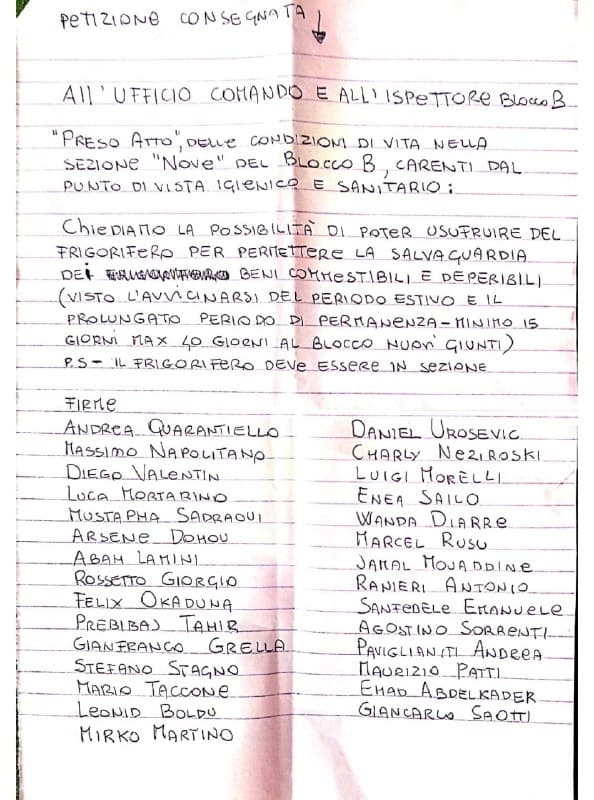 PETIZIONE CONSEGNATA
All' UFFICIO COMANDO E ALL'ISPETTORE BLOCCO B
"PRESO ATTO", DELLE CONDIZIONI DI VITA NELLA
SEZIONE "NOVE" DEL BLOCCO B, CARENTI DAL
PUNTO DI VISTA IGIENICO E SANITARIO:
CHIEDIAMO LA POSSIBILITÀ DI POTER USUFRUIRE DEL
FRIGORIFERO PER PERMETTERE LA SALVAGUARDIA
DEI BENI COMMESTIBILI E DEPERIBILI
(VISTO L'AVVICINARSI DEL PERIODO ESTIVO E IL
PROLUNGATO PERIODO DI PERMANENZA - MINIMO 15
GIORNI MAX 40 GIORNI AL BLOCCO NUOVI GIUNTI)
P.S - IL FRIGORIFERO DEVE ESSERE IN SEZIONE
FIRME
ANDREA QUARANTIELLO
MASSIMO NAPOLITANO
DIEGO VALENTIN
LUCA MORTARINO
MUSTAPHA SADRAOUI
ARSENE DOMOU
ABAM LAMINI
ROSSETTO GIORGIO
FELIX OKADUNA
PREBIBAJ TAHIR
GIANFRANCO GRELLA
STEFANO STAGNO
MARIO TACCONE
LEONID BOLDU
MIRKO MARTINO
DANIEL UROSEVIC
CHARLY NEZIROSKI
LUIGI MORELLI
ENEA SAILO
WANDA DIARRE
MARCEL RUSU
JAMAL MOUADDINE
RANIERI ANTONIO
SANFEDELE EMANUELE
AGOSTINO SORRENTI
PAVIGLIANITI ANDREA
MAURIZIO PATTI
EMAD ABDELKADER
GIANCARLO SAOTTI